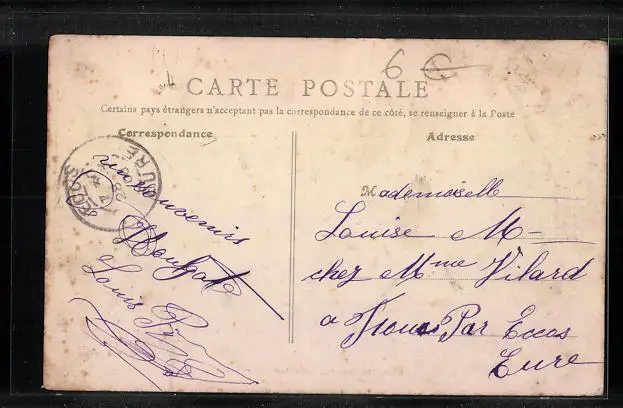 6 €
CARTE POSTALE
Certains pays étrangers n'acceptant pas la correspondance de ce côté, se renseigner à la Poste
Correspondance
Adresse
EURE
souvenirs
Louis
Mademoiselle
Louise M-
chez Mme Vilard
a Par Ecos
Eure